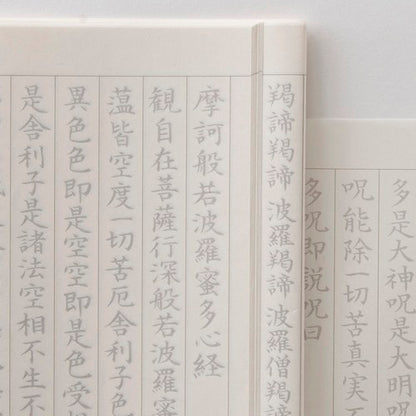 多是大神呪是大明呪
呪能除一切苦真実不
多呪即説呪曰
羯諦羯諦 波羅羯諦 波羅僧羯諦
摩訶般若波羅蜜多心経
観自在菩薩行深般若波羅蜜
薀皆空度一切苦厄舎利子色
異色色即是空空即是色受想
是舎利子是諸法空相不生不